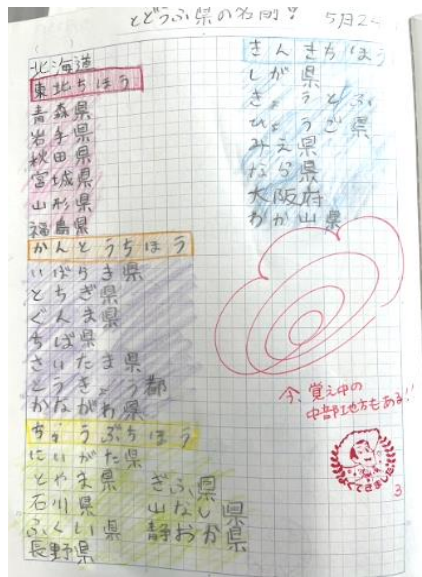 とどうふ県の名前!
5月2
北海道
東北ちほう
青森県
岩手県
秋田県
宮城県
山形県
福島県
かんとうちほう
いばらき県
とちぎ県
ぐんま県
ちば県
さいたま県
とうきょう都
かながわ県
ちゅうぶちほう
にいがた県
とやま県
石川県
ふくい県
長野県
ぎふ県
山なし県
静おか県
きんきちほう
しが県
きょうとふ
ひょうご県
みえ県
なら県
大阪府
わか山県
今、覚え中の
中部地方もある!!
よくできました
3